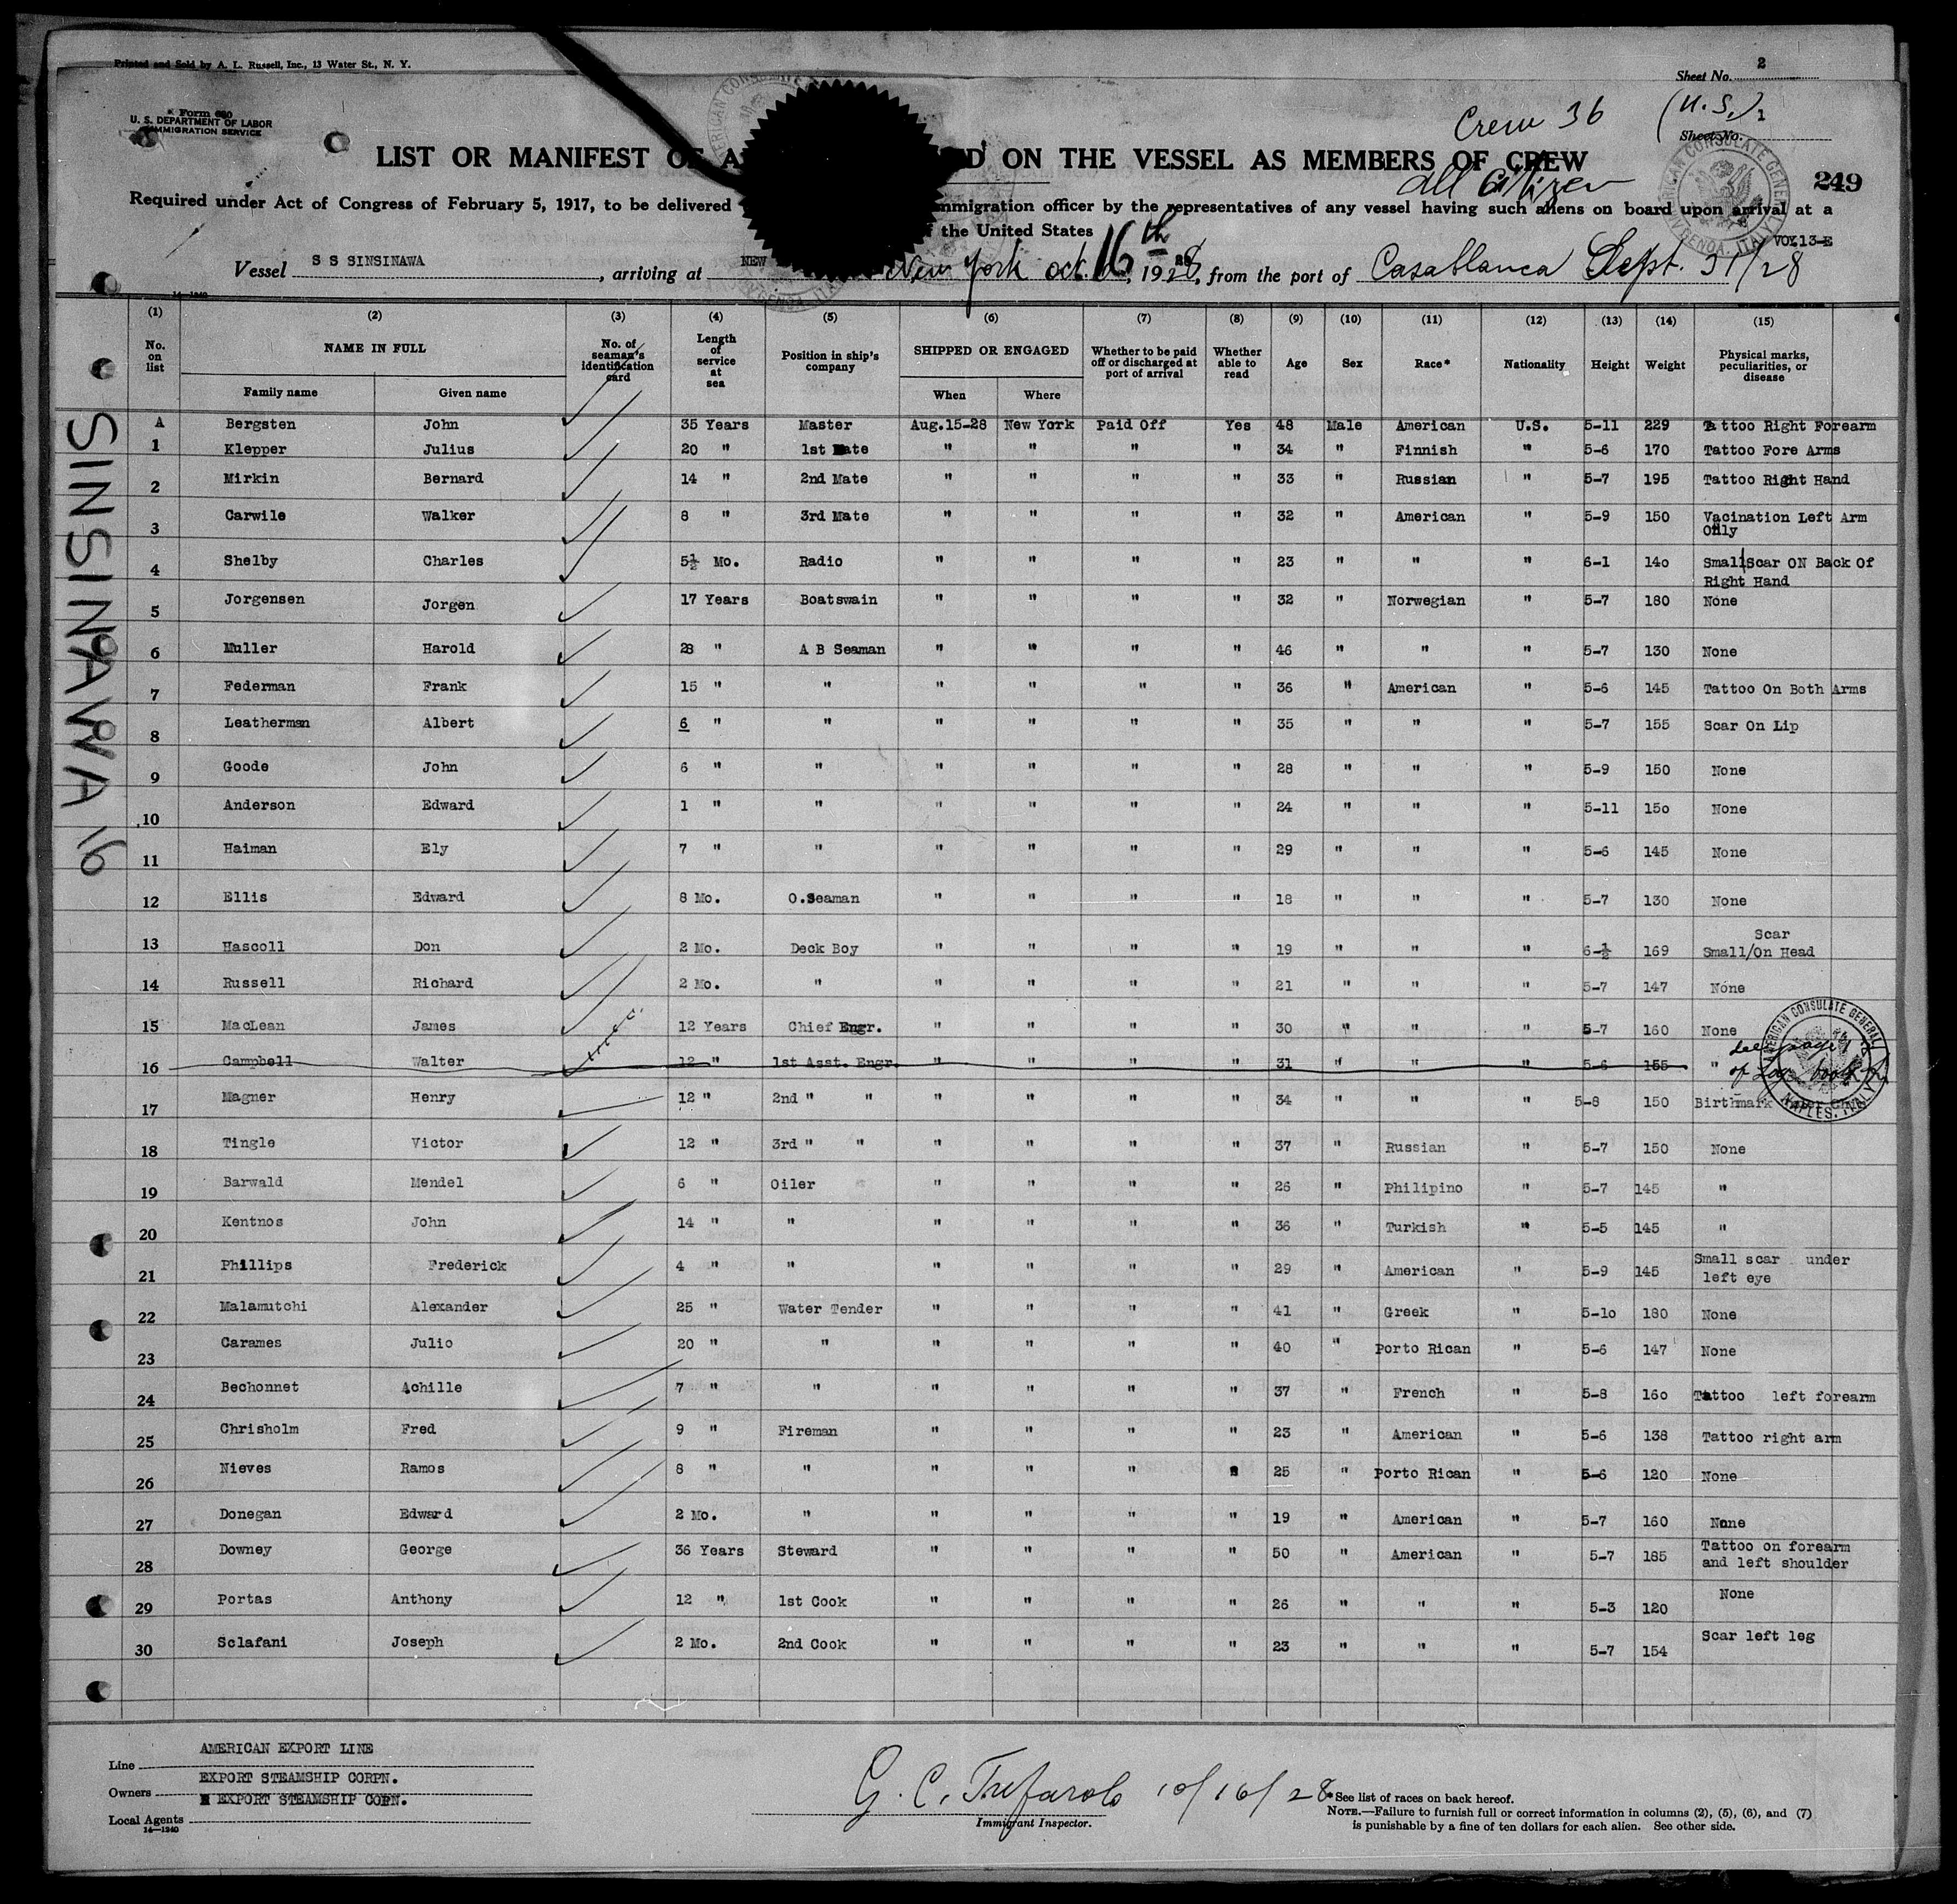 Printed and Sold by A. L. Russell, Inc., 13 Water St., N. Y.
Sheet No. 2
Form 680
U. S. DEPARTMENT OF LABOR
IMMIGRATION SERVICE
Crew 36
(U.S.) 1
Sheet No.
LIST OR MANIFEST OF A D ON THE VESSEL AS MEMBERS OF CREW
all Citizen
249
Required under Act of Congress of February 5, 1917, to be delivered immigration officer by the representatives of any vessel having such aliens on board upon arrival at a
f the United States
VOY.13-E
Vessel S S SINSINAWA, arriving at NEW New York Oct. 16th, 1928, from the port of Casablanca Sept. 31/28
14-1240
(1) (2) (3) (4) (5) (6) (7) (8) (9) (10) (11) (12) (13) (14) (15)
No. on list NAME IN FULL No. of seaman's identification card Length of service at sea Position in ship's company SHIPPED OR ENGAGED Whether to be paid off or discharged at port of arrival Whether able to read Age Sex Race* Nationality Height Weight Physical marks, peculiarities, or disease
Family name Given name When Where
A Bergsten John 35 Years Master Aug.15-28 New York Paid Off Yes 48 Male American U.S. 5-11 229 Tattoo Right Forearm
1 Klepper Julius 20 " 1st Mate " " " " 34 " Finnish " 5-6 170 Tattoo Fore Arms
2 Mirkin Bernard 14 " 2nd Mate " " " " 33 " Russian " 5-7 195 Tattoo Right Hand
3 Carwile Walker 8 " 3rd Mate " " " " 32 " American " 5-9 150 Vacination Left Arm
Only
4 Shelby Charles 5½ Mo. Radio " " " " 23 " " " 6-1 14o Small Scar ON Back Of
Right Hand
5 Jorgensen Jorgen 17 Years Boatswain " " " " 32 " Norwegian " 5-7 180 None
6 Muller Harold 28 " A B Seaman " " " " 46 " " " 5-7 130 None
7 Federman Frank 15 " " " " " " 36 " American " 5-6 145 Tattoo On Both Arms
8 Leatherman Albert 6 " " " " " " 35 " " " 5-7 155 Scar On Lip
9 Goode John 6 " " " " " " 28 " " " 5-9 150 None
10 Anderson Edward 1 " " " " " " 24 " " " 5-11 15o None
11 Haiman Ely 7 " " " " " " 29 " " " 5-6 145 None
12 Ellis Edward 8 Mo. O.Seaman " " " " 18 " " " 5-7 130 None
13 Hascoll Don 2 Mo. Deck Boy " " " " 19 " " " 6-½ 169 Small/On Head
Scar
14 Russell Richard 2 Mo. " " " " " 21 " " " 5-7 147 None
15 MacLean James 12 Years Chief Engr. " " " " 30 " " " 5-7 160 None
16 Campbell Walter 12 " 1st Asst. Engr. " " " " 31 " " " 5-6 155 "
see page
of Log book
AMERICAN CONSULATE GENERAL
NAPLES, ITALY
17 Magner Henry 12 " 2nd " " " " " " 34 " " " 5-8 150 Birthmark
18 Tingle Victor 12 " 3rd " " " " " " 37 " Russian " 5-7 150 None
19 Barwald Mendel 6 " Oiler " " " " 26 " Philipino " 5-7 145 "
20 Kentnos John 14 " " " " " " 36 " Turkish " 5-5 145 "
21 Phillips Frederick 4 " " " " " " 29 " American " 5-9 145 Small scar under
left eye
22 Malamutchi Alexander 25 " Water Tender " " " " 41 " Greek " 5-10 180 None
23 Carames Julio 20 " " " " " " 40 " Porto Rican " 5-6 147 None
24 Bechonnet Achille 7 " " " " " " 37 " French " 5-8 16o Tattoo left forearm
25 Chrisholm Fred 9 " Fireman " " " " 23 " American " 5-6 138 Tattoo right arm
26 Nieves Ramos 8 " " " " " " 25 " Porto Rican " 5-6 120 None
27 Donegan Edward 2 Mo. " " " " " 19 " American " 5-7 160 None
28 Downey George 36 Years Steward " " " " 50 " American " 5-7 185 Tattoo on forearm
and left shoulder
29 Portas Anthony 12 " 1st Cook " " " " 26 " " " 5-3 120 None
30 Sclafani Joseph 2 Mo. 2nd Cook " " " " 23 " " " 5-7 154 Scar left leg
SINSINAWA 16
AMERICAN CONSULATE GENERAL
GENOA, ITALY
Line AMERICAN EXPORT LINE
Owners EXPORT STEAMSHIP CORPN.
Local Agents EXPORT STEAMSHIP COPN.
14-1240
G. C. Trefarolo 10/16/28
Immigrant Inspector.
*See list of races on back hereof.
NOTE.—Failure to furnish full or correct information in columns (2), (5), (6), and (7)
is punishable by a fine of ten dollars for each alien. See other side.